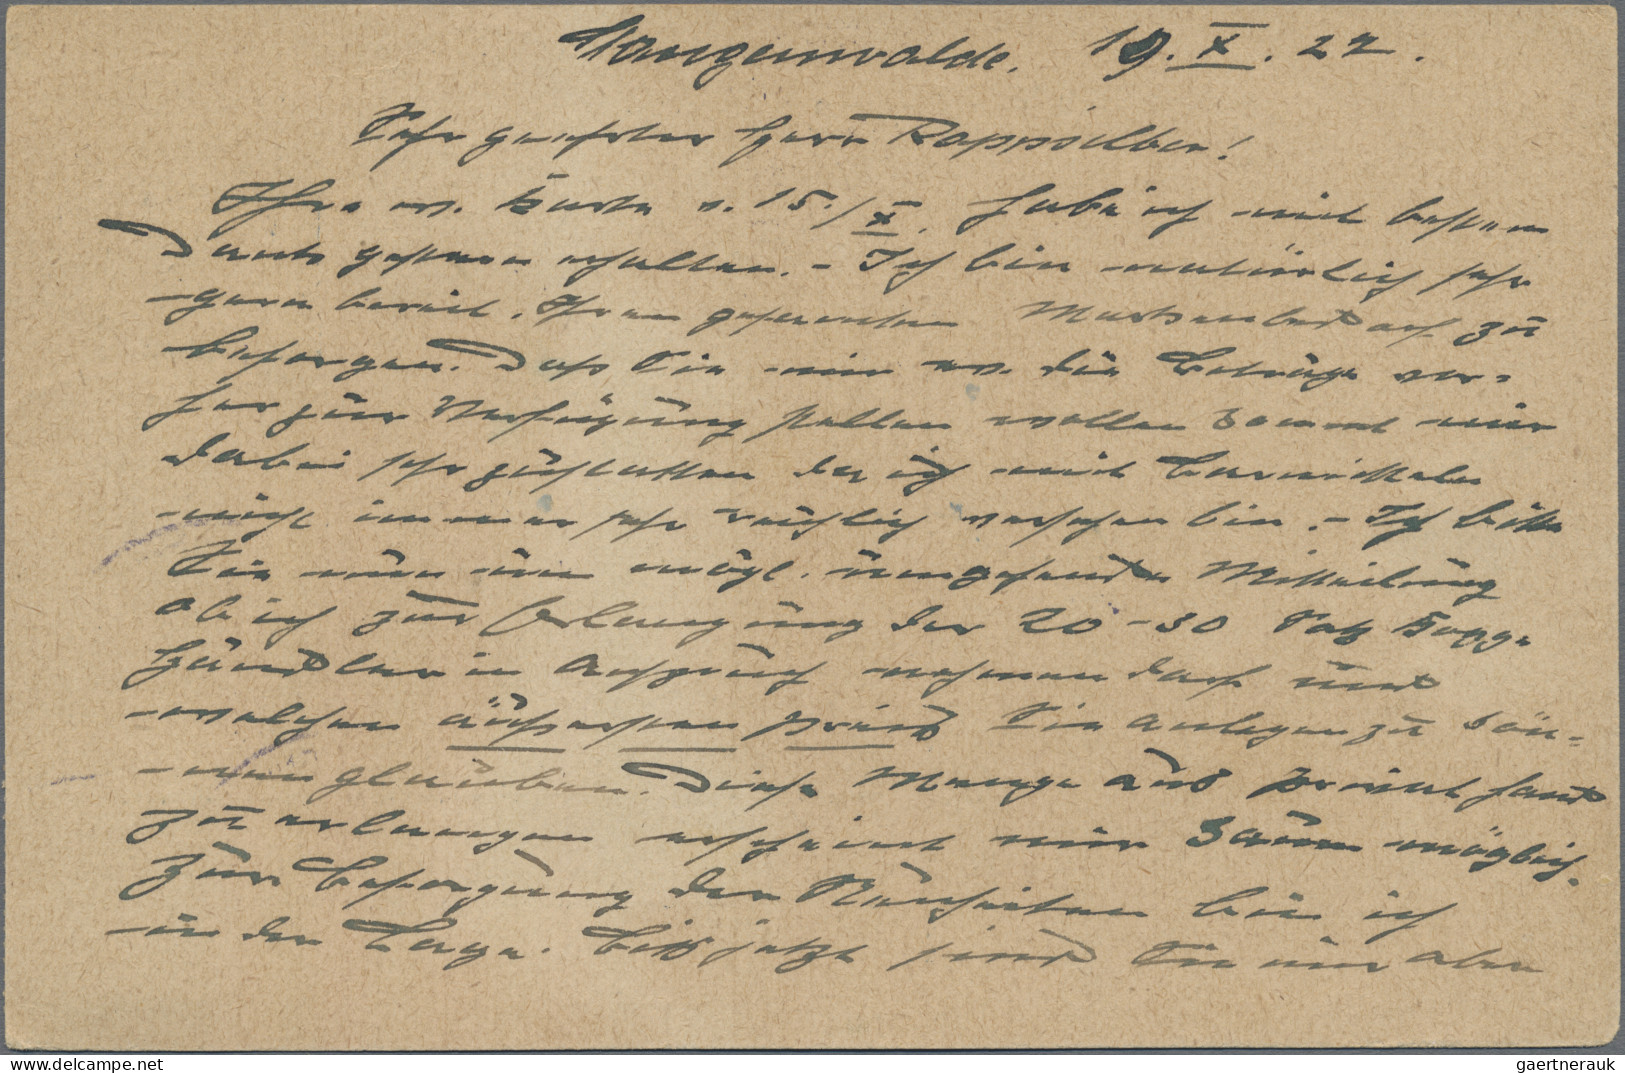 Langenwalde. 19. X. 22.
Sehr geehrter Herr Rappsilber!
Ihre w. Karte v. 15./X. habe ich mit bestem
Dank gestern erhalten. - Ich bin natürlich sehr
gern bereit, Ihren gesamten Markenbedarf zu
besorgen. Dass Sie mir ev. die Beträge vor-
her zur Verfügung stellen wollen kommt mir
dabei sehr zustatten da ich mit Barmitteln
nicht immer sehr reichlich versehen bin. - Ich bitte
Sie nun um mögl. umgehende Mitteilung
ob ich zur Erlangung der 20-30 Satz
Händler in Anspruch nehmen darf und
welchen äussersten Preis Sie anlegen zu kön-
nen glauben. Diese Menge aus Privathand
zu erlangen erscheint mir kaum möglich.
Zur Besorgung der Neuheiten bin ich
in der Lage. Bis jetzt sind Sie mir aber